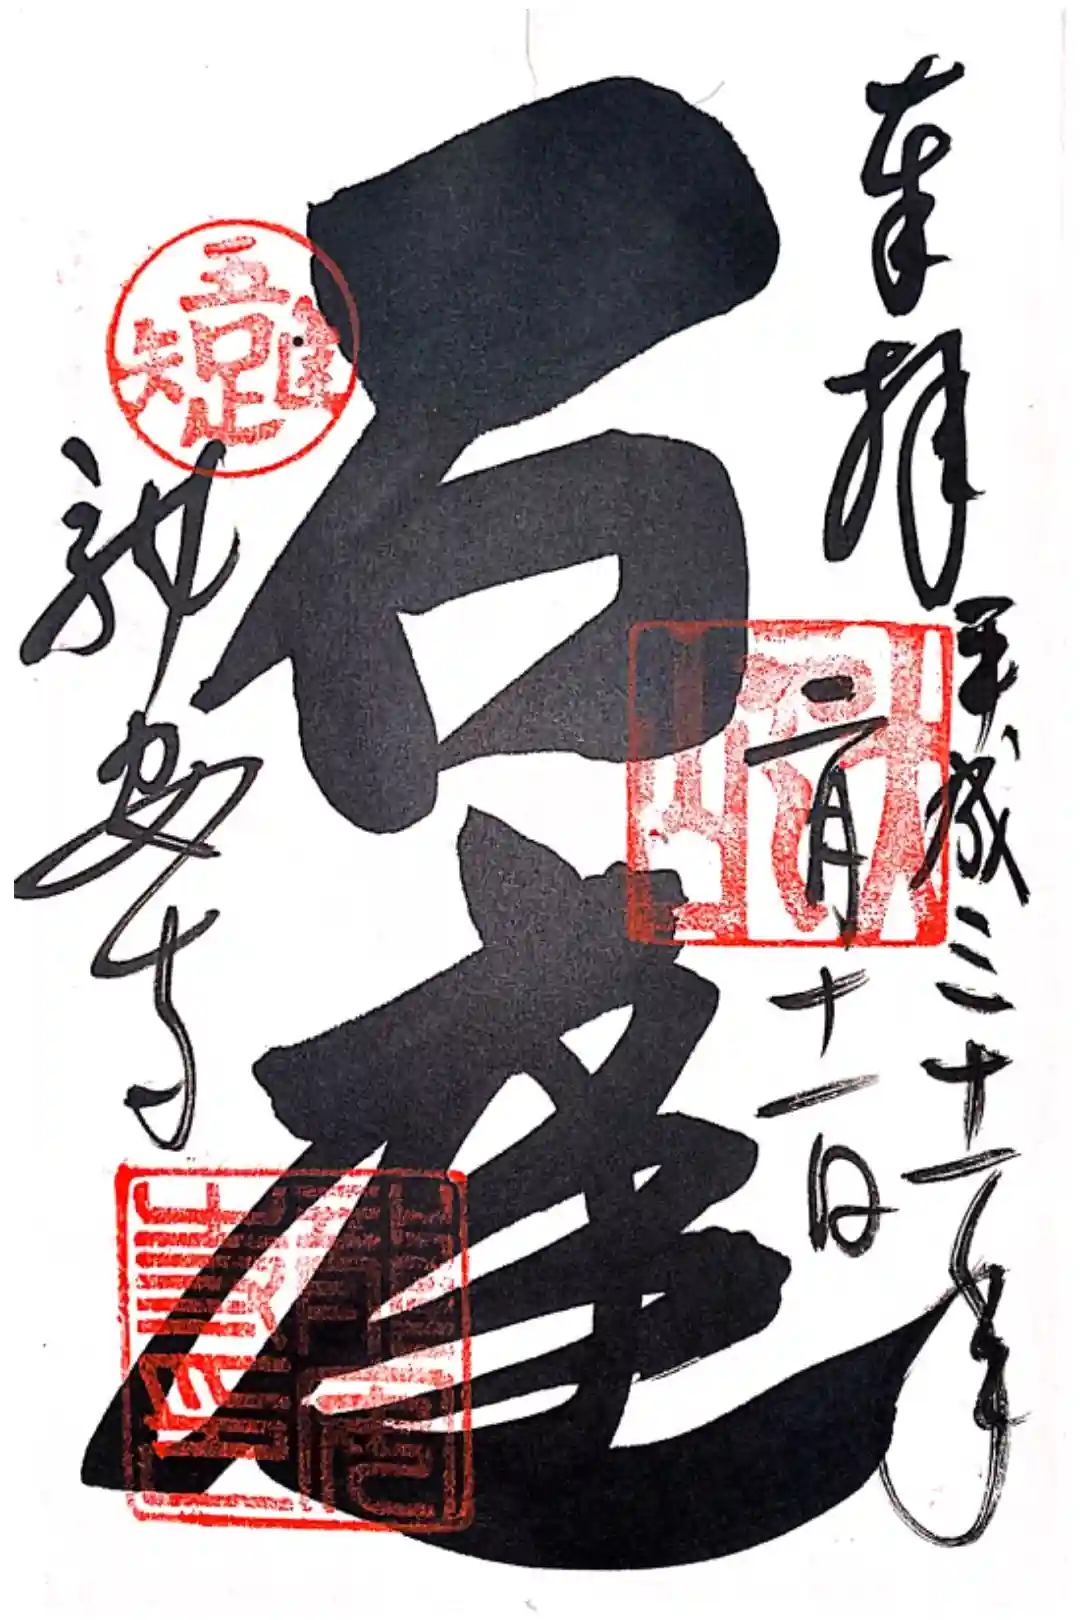 奉拝
平成三十一年
二月十一日
石庭
吾唯足知
龍安寺